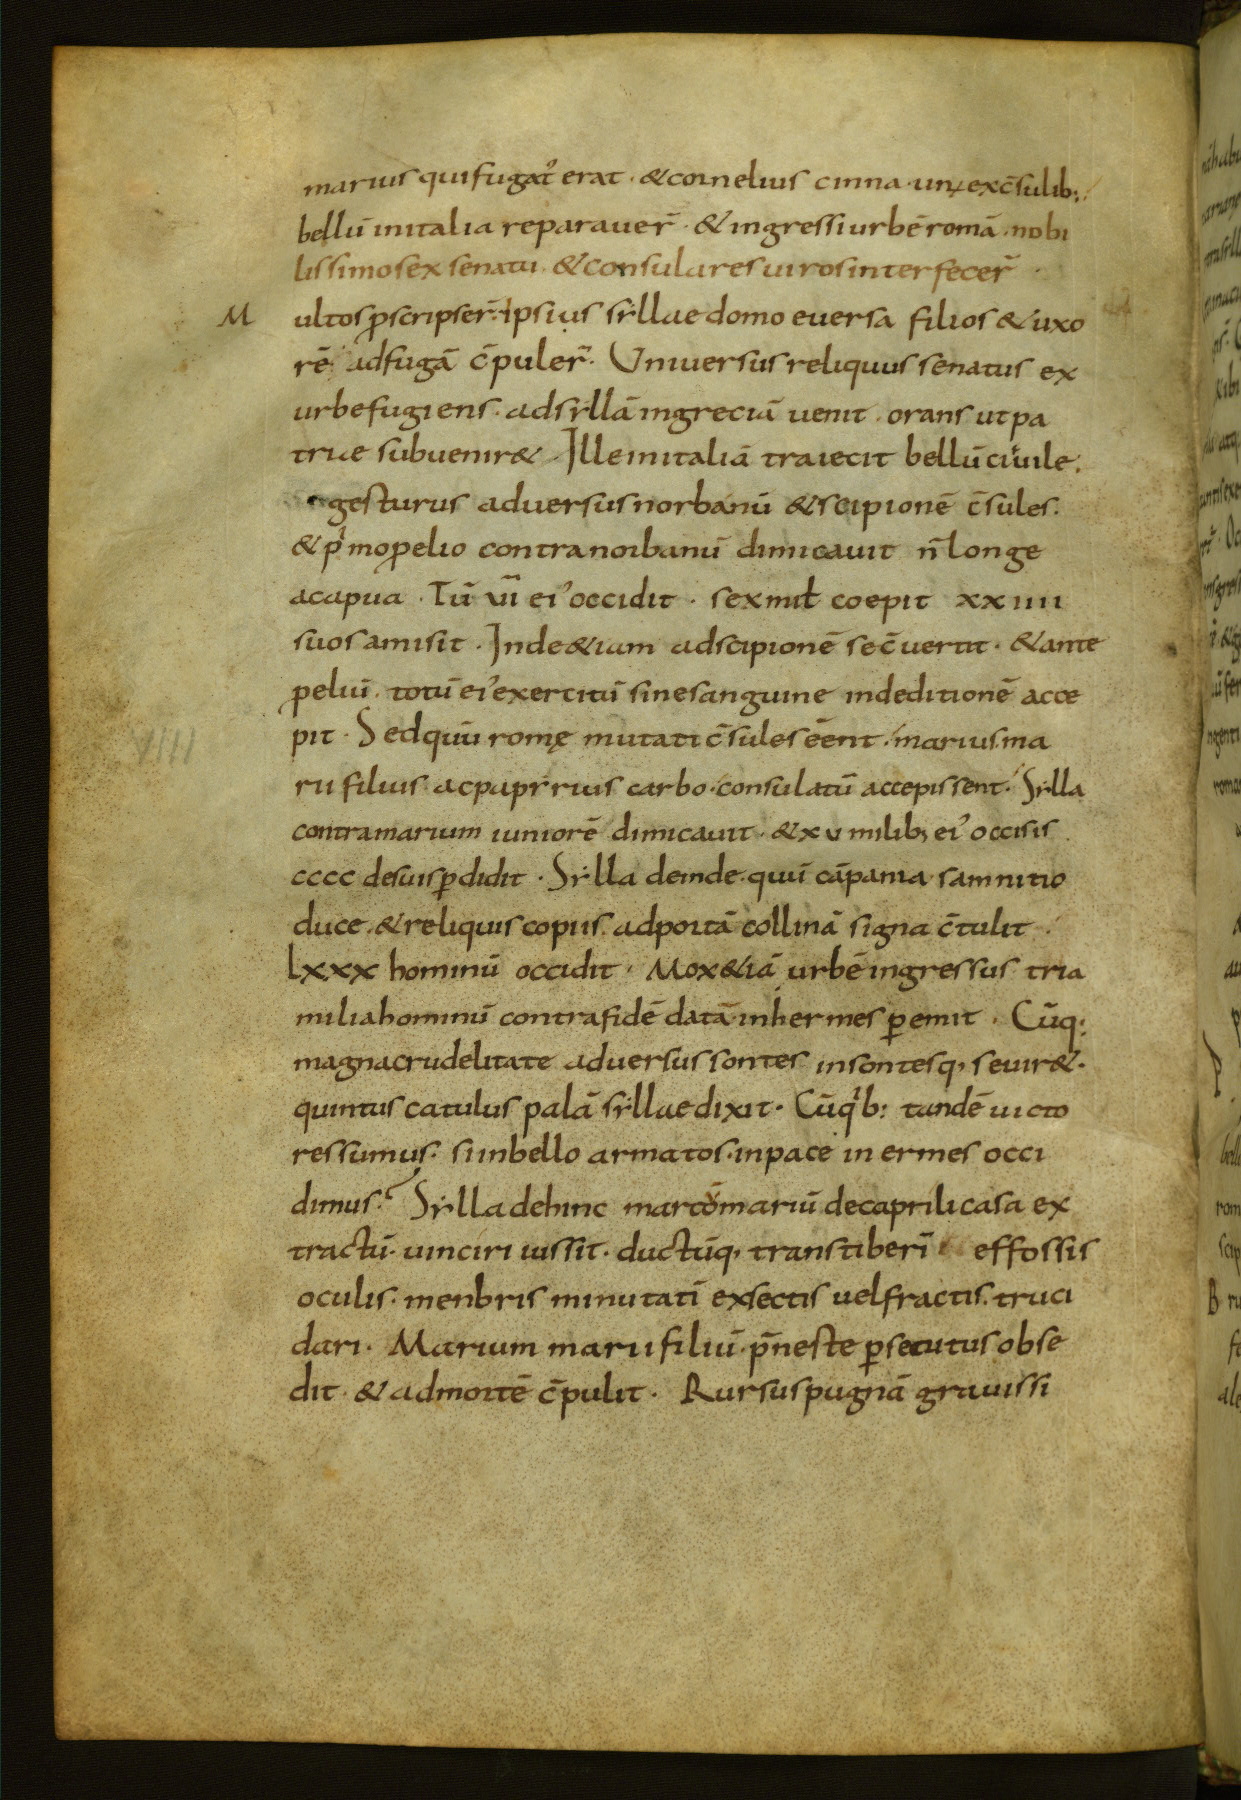 marius qui fugatꝰ erat · & cornelius cinna · unꝰ ex c̄sulib;
bellū in italia reparauer̄ · & ingressi urbē romā · nobi
lissimos ex senatu · & consulares uiros interfecer̄ ·
M ultos ꝓscripser̄ · ipsius syllae domo euersa filios & uxo
rē ad fugā c̄puler̄ · Uniuersus reliquus senatus ex
urbe fugiens · ad syllā in greciā uenit · orans ut pa
triae subuenir& · Ille in italiā traiecit bellū ciuile ·
gesturus aduersus norbanū & scipionē c̄sules ·
& pͥmo ꝓelio contra norbanū dimicauit n̄ longe
a capua · Tū VII eiꝰ occidit · sex mił coepit XXIIII
suos amisit · Inde &iam ad scipionē se c̄uertit · & ante
ꝓeliū · totū eiꝰ exercitū sine sanguine in deditionē acce
pit · Sed quū romę mutati c̄sules ēent · marius ma
rii filius ac papyrius carbo · consulatū accepissent · Sylla
contra marium iuniorē dimicauit · & XV milib; eiꝰ occisis
CCCC de suis ꝑdidit · Sylla deinde · quū cāpania samnitio
duce · & reliquis copiis · ad portā collinā signa c̄tulit ·
LXXX hominū occidit · Mox &iā urbē ingressus tria
milia hominū contra fidē datā · inhermes ꝑemit · Cūq;
magna crudelitate aduersus sontes insontesq; seuir& ·
quintus catulus palā syllae dixit · Cū qͥb; tandē uicto
res sumus · si in bello armatos · in pace inermes occi
dimus · Sylla dehinc marcō mariū de caprili casa ex
tractū · uinciri iussit · ductūq; trans tiberī effossis
oculis · menbris minutatī exsectis uel fractis · truci
dari · Marium marii filiū · p̄neste ꝑsecutus obse
dit · & ad mortē c̄pulit · Rursus pugnā grauissi